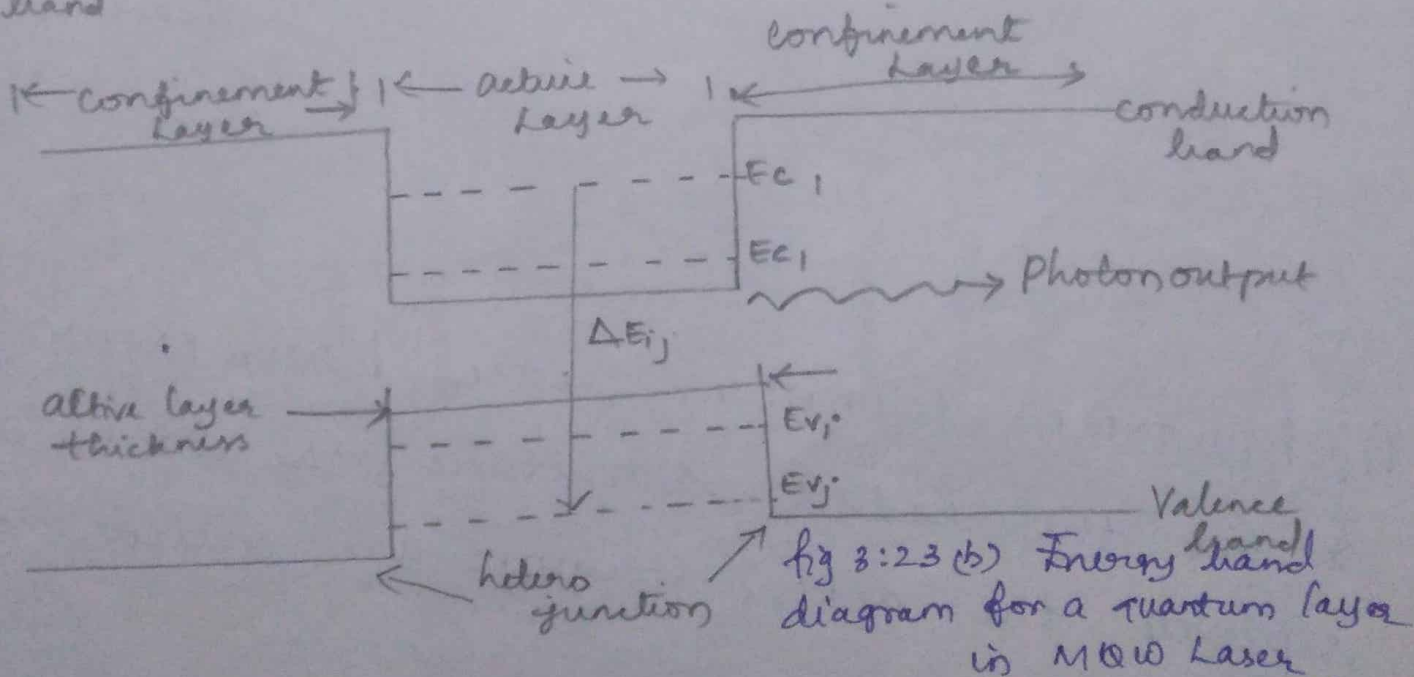 band
confinement
Layer
active
Layer
confinement
Layer
conduction
band
Ec1
Ec1
Photon output
ΔEij
active layer
thickness
Evj
Evj
Valence
band
hetero
junction
fig 3:23 (b) Energy band
diagram for a quantum layer
in MQW Laser